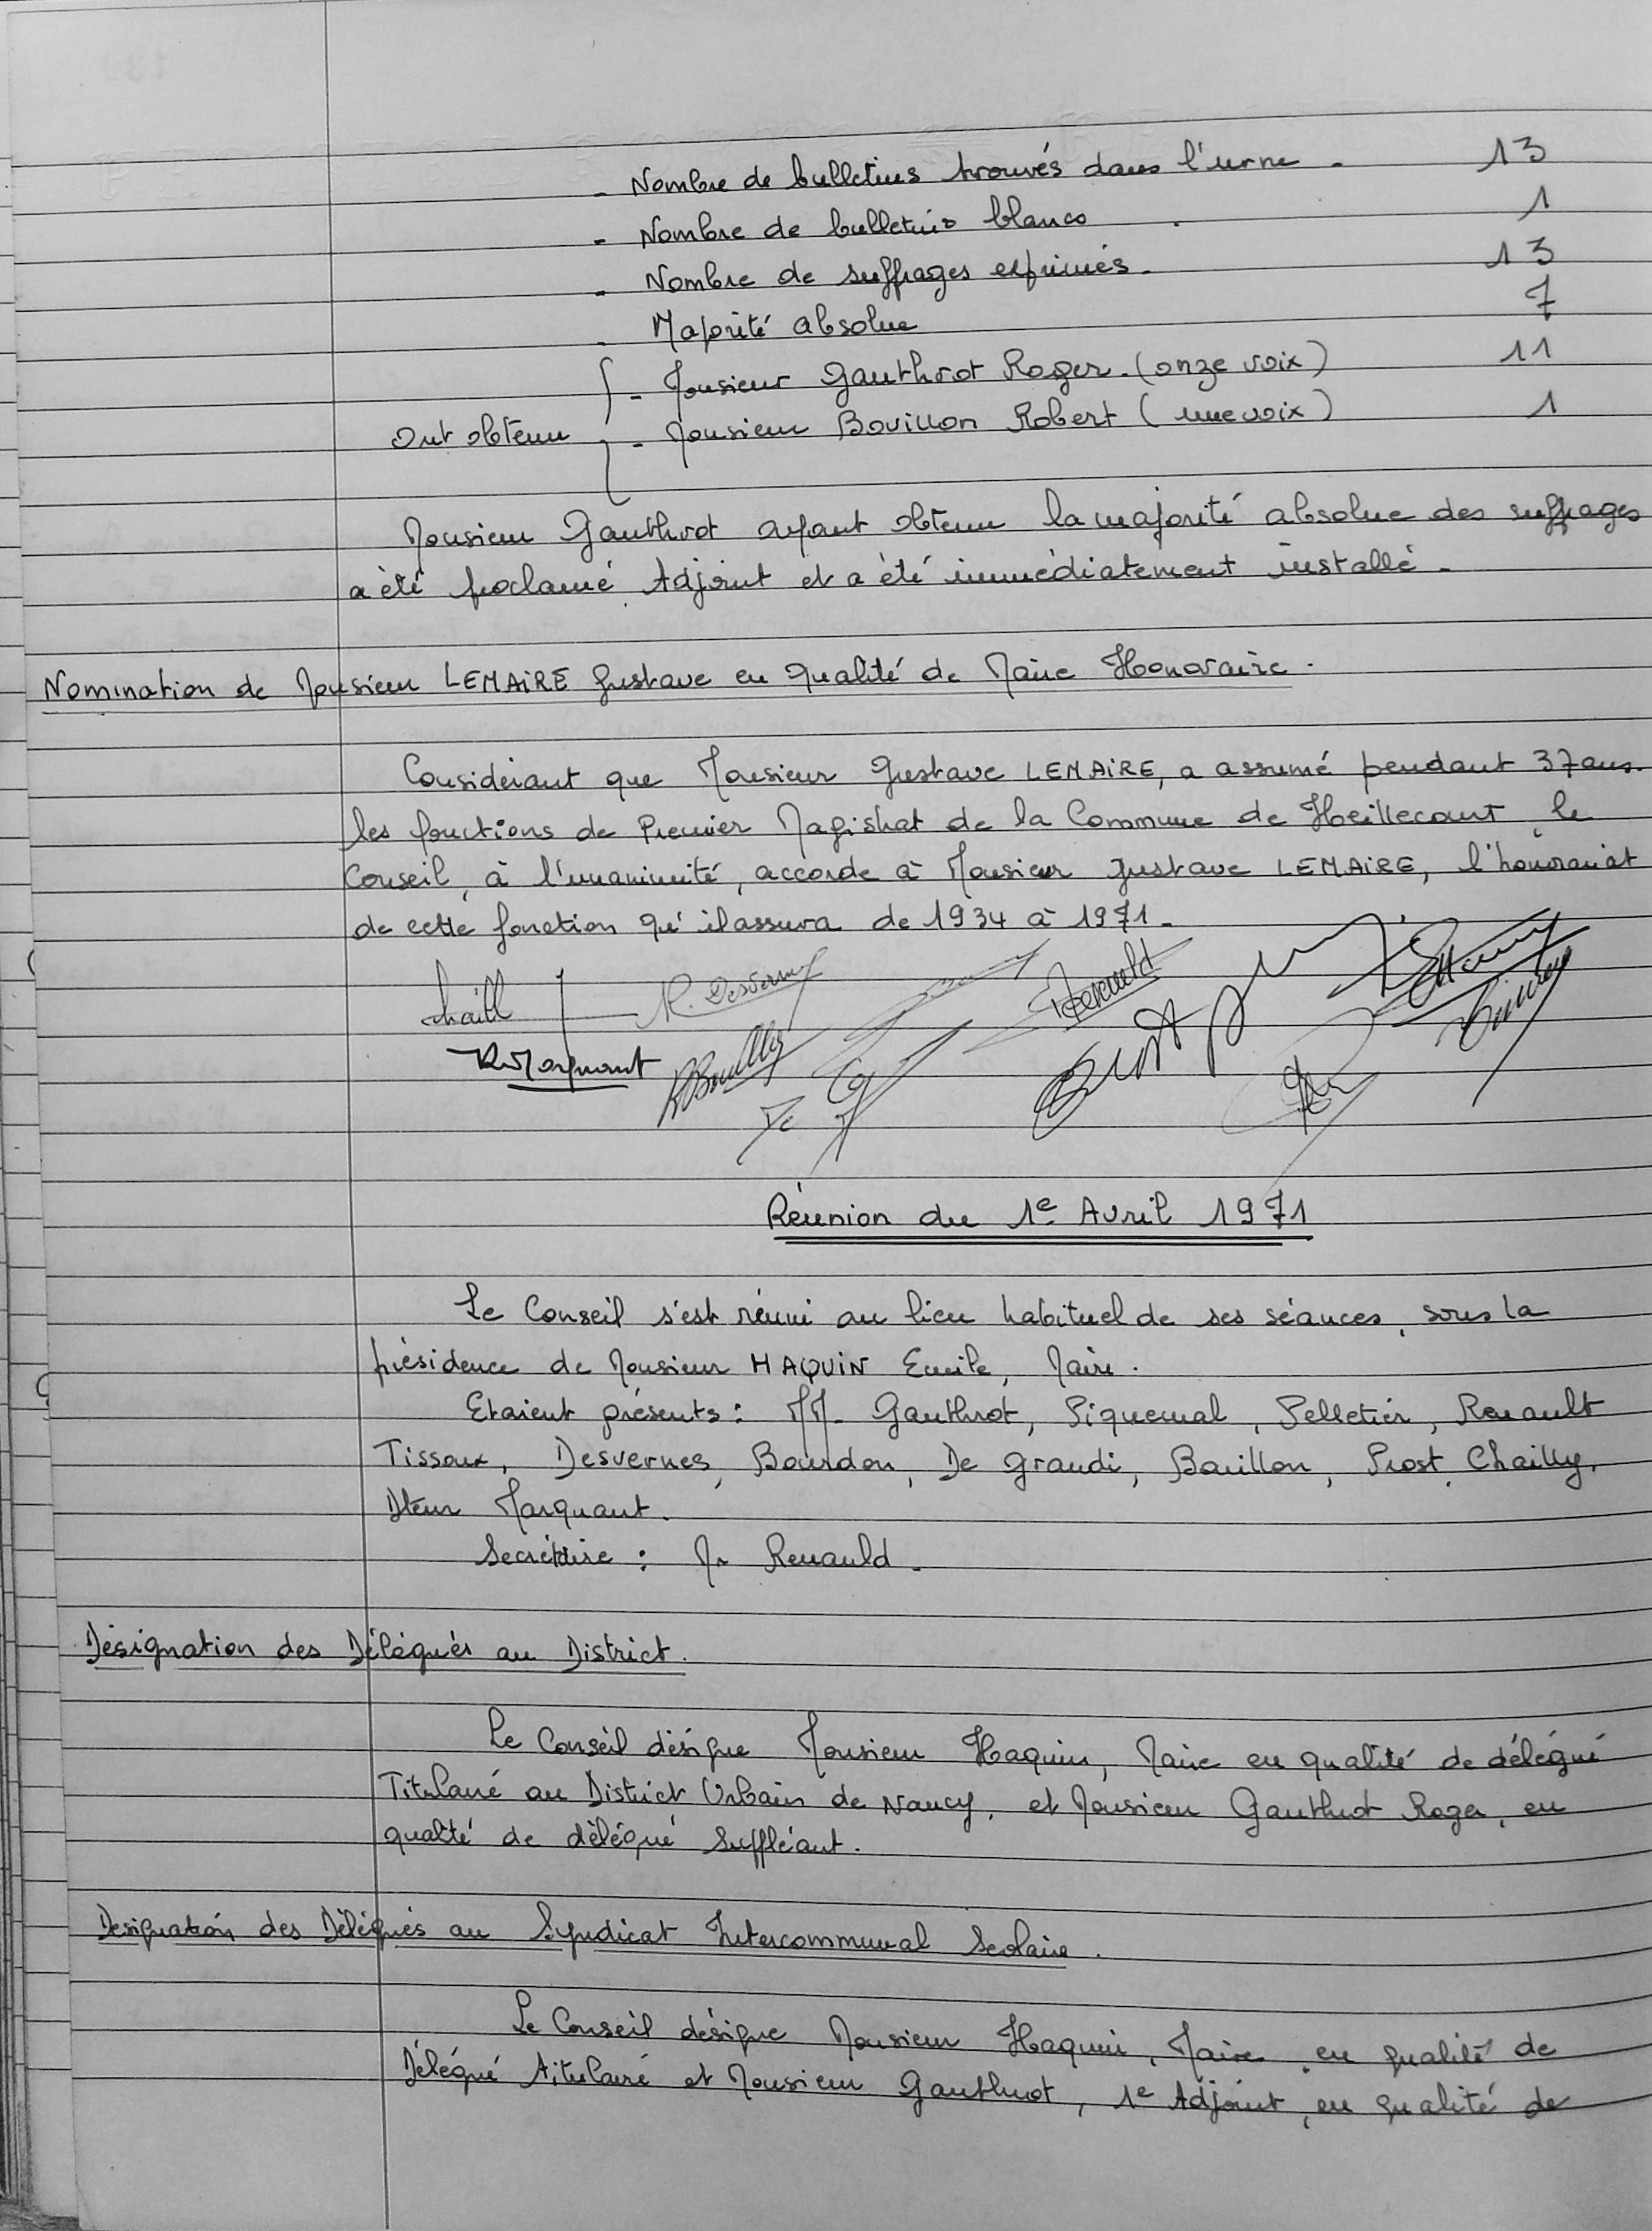 - Nombre de bulletins trouvés dans l'urne - 13
- Nombre de bulletins blancs . 1
- Nombre de suffrages exprimés - 13
- Majorité absolue 7
- Monsieur Gauthrot Roger - (onze voix) 11
Ont obtenu - Monsieur Bouillon Robert (une voix) 1
Monsieur Gauthrot ayant obtenu la majorité absolue des suffrages
a été proclamé Adjoint et a été immédiatement installé -
Nomination de Monsieur LEMAIRE Gustave en qualité de Maire Honoraire .
Considérant que Monsieur Gustave LEMAIRE, a assumé pendant 37 ans
les fonctions de Premier Magistrat de la Commune de Heillecourt, le
Conseil, à l'unanimité, accorde à Monsieur Gustave LEMAIRE, l'honorariat
de cette fonction qu'il assura de 1934 à 1971 -
Chaill R. Desvern Renauld
R Marquant RBouillon
Réunion du 1e Avril 1971
Le Conseil s'est réuni au lieu habituel de ses séances, sous la
présidence de Monsieur HAQUIN Emile, Maire .
Etaient présents : MM. Gauthrot, Piquemal, Pelletier, Renault
Tissoux, Desvernes, Bourdon, De Grandi, Bouillon, Prost, Chailly,
Marquant .
Secrétaire : Mr Renauld .
Désignation des Délégués au District .
Le Conseil désigne Monsieur Haquin, Maire en qualité de délégué
Titulaire au District Urbain de Nancy, et Monsieur Gauthrot Roger, en
qualité de délégué Suppléant .
Designation des Délégués au Syndicat Intercommunal Scolaire .
Le Conseil désigne Monsieur Haquin, Maire, en qualité de
Délégué titulaire et Monsieur Gauthrot, 1e Adjoint, en qualité de